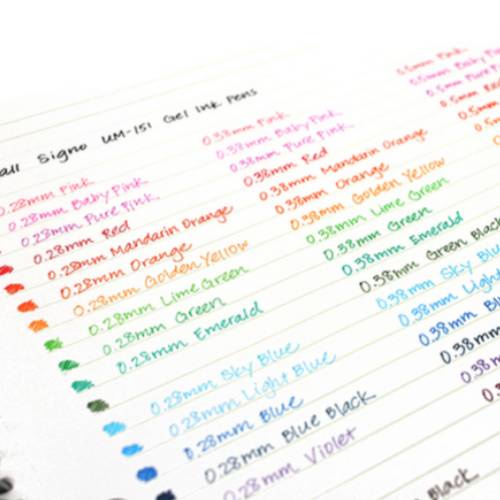 all Signo UM-151 Gel Ink Pens
0.28mm Pink
0.28mm Baby Pink
0.28mm Pure Pink
0.28mm Red
0.28mm Mandarin Orange
0.28mm Orange
0.28mm Golden Yellow
0.28mm Lime Green
0.28mm Green
0.28mm Emerald
0.28mm Sky Blue
0.28mm Light Blue
0.28mm Blue
0.28mm Blue Black
0.28mm Violet
0.38mm Pink
0.38mm Baby Pink
0.38mm Pure Pink
0.38mm Red
0.38mm Mandarin Orange
0.38mm Orange
0.38mm Golden Yellow
0.38mm Lime Green
0.38mm Green
0.38mm Emerald
0.38mm Green Black
0.38mm Sky Blu
0.38mm Ligh
0.38mm B
0.38mm
0.38m
Black
0.5mm Pink
0.5mm Baby P
0.5mm Pure P
0.5mm Red
0.5mm